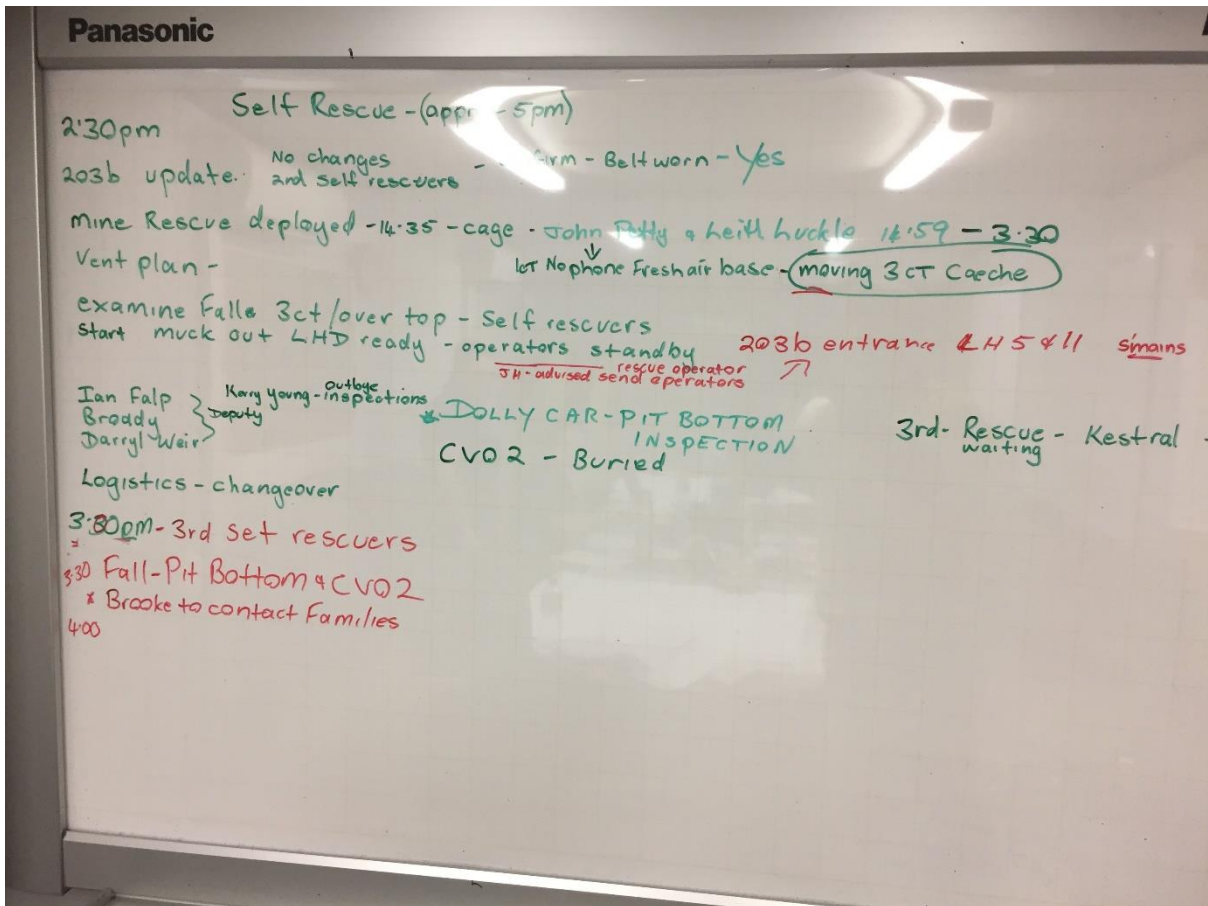 Panasonic
Self Rescue - (appr - 5pm)
2:30pm
203b update. No changes and self rescuers - firm - Belt worn - Yes
mine Rescue deployed - 14.35 - cage - John Putty & Leith Luckle 14:59 - 3.30
Vent plan - No phone Fresh air base - moving 3 CT Caeche
examine Falls 3ct/over top - Self rescuers
Start muck out LHD ready - operators standby
rescue operator
JH - advised send operators
203b entrance LH 5 & 11 smains
Ian Falp
Broady
Darryl Weir
Deputy
Kerry Young - outbye inspections
* DOLLY CAR - PIT BOTTOM
INSPECTION
CVO2 - Buried
3rd - Rescue - Kestral -
waiting
Logistics - changeover
3:30pm - 3rd set rescuers
3:30 Fall - Pit Bottom & CVO2
* Brooke to contact Families
4:00